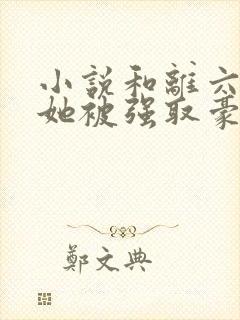 小説和離六
她被强取豪
鄭文典